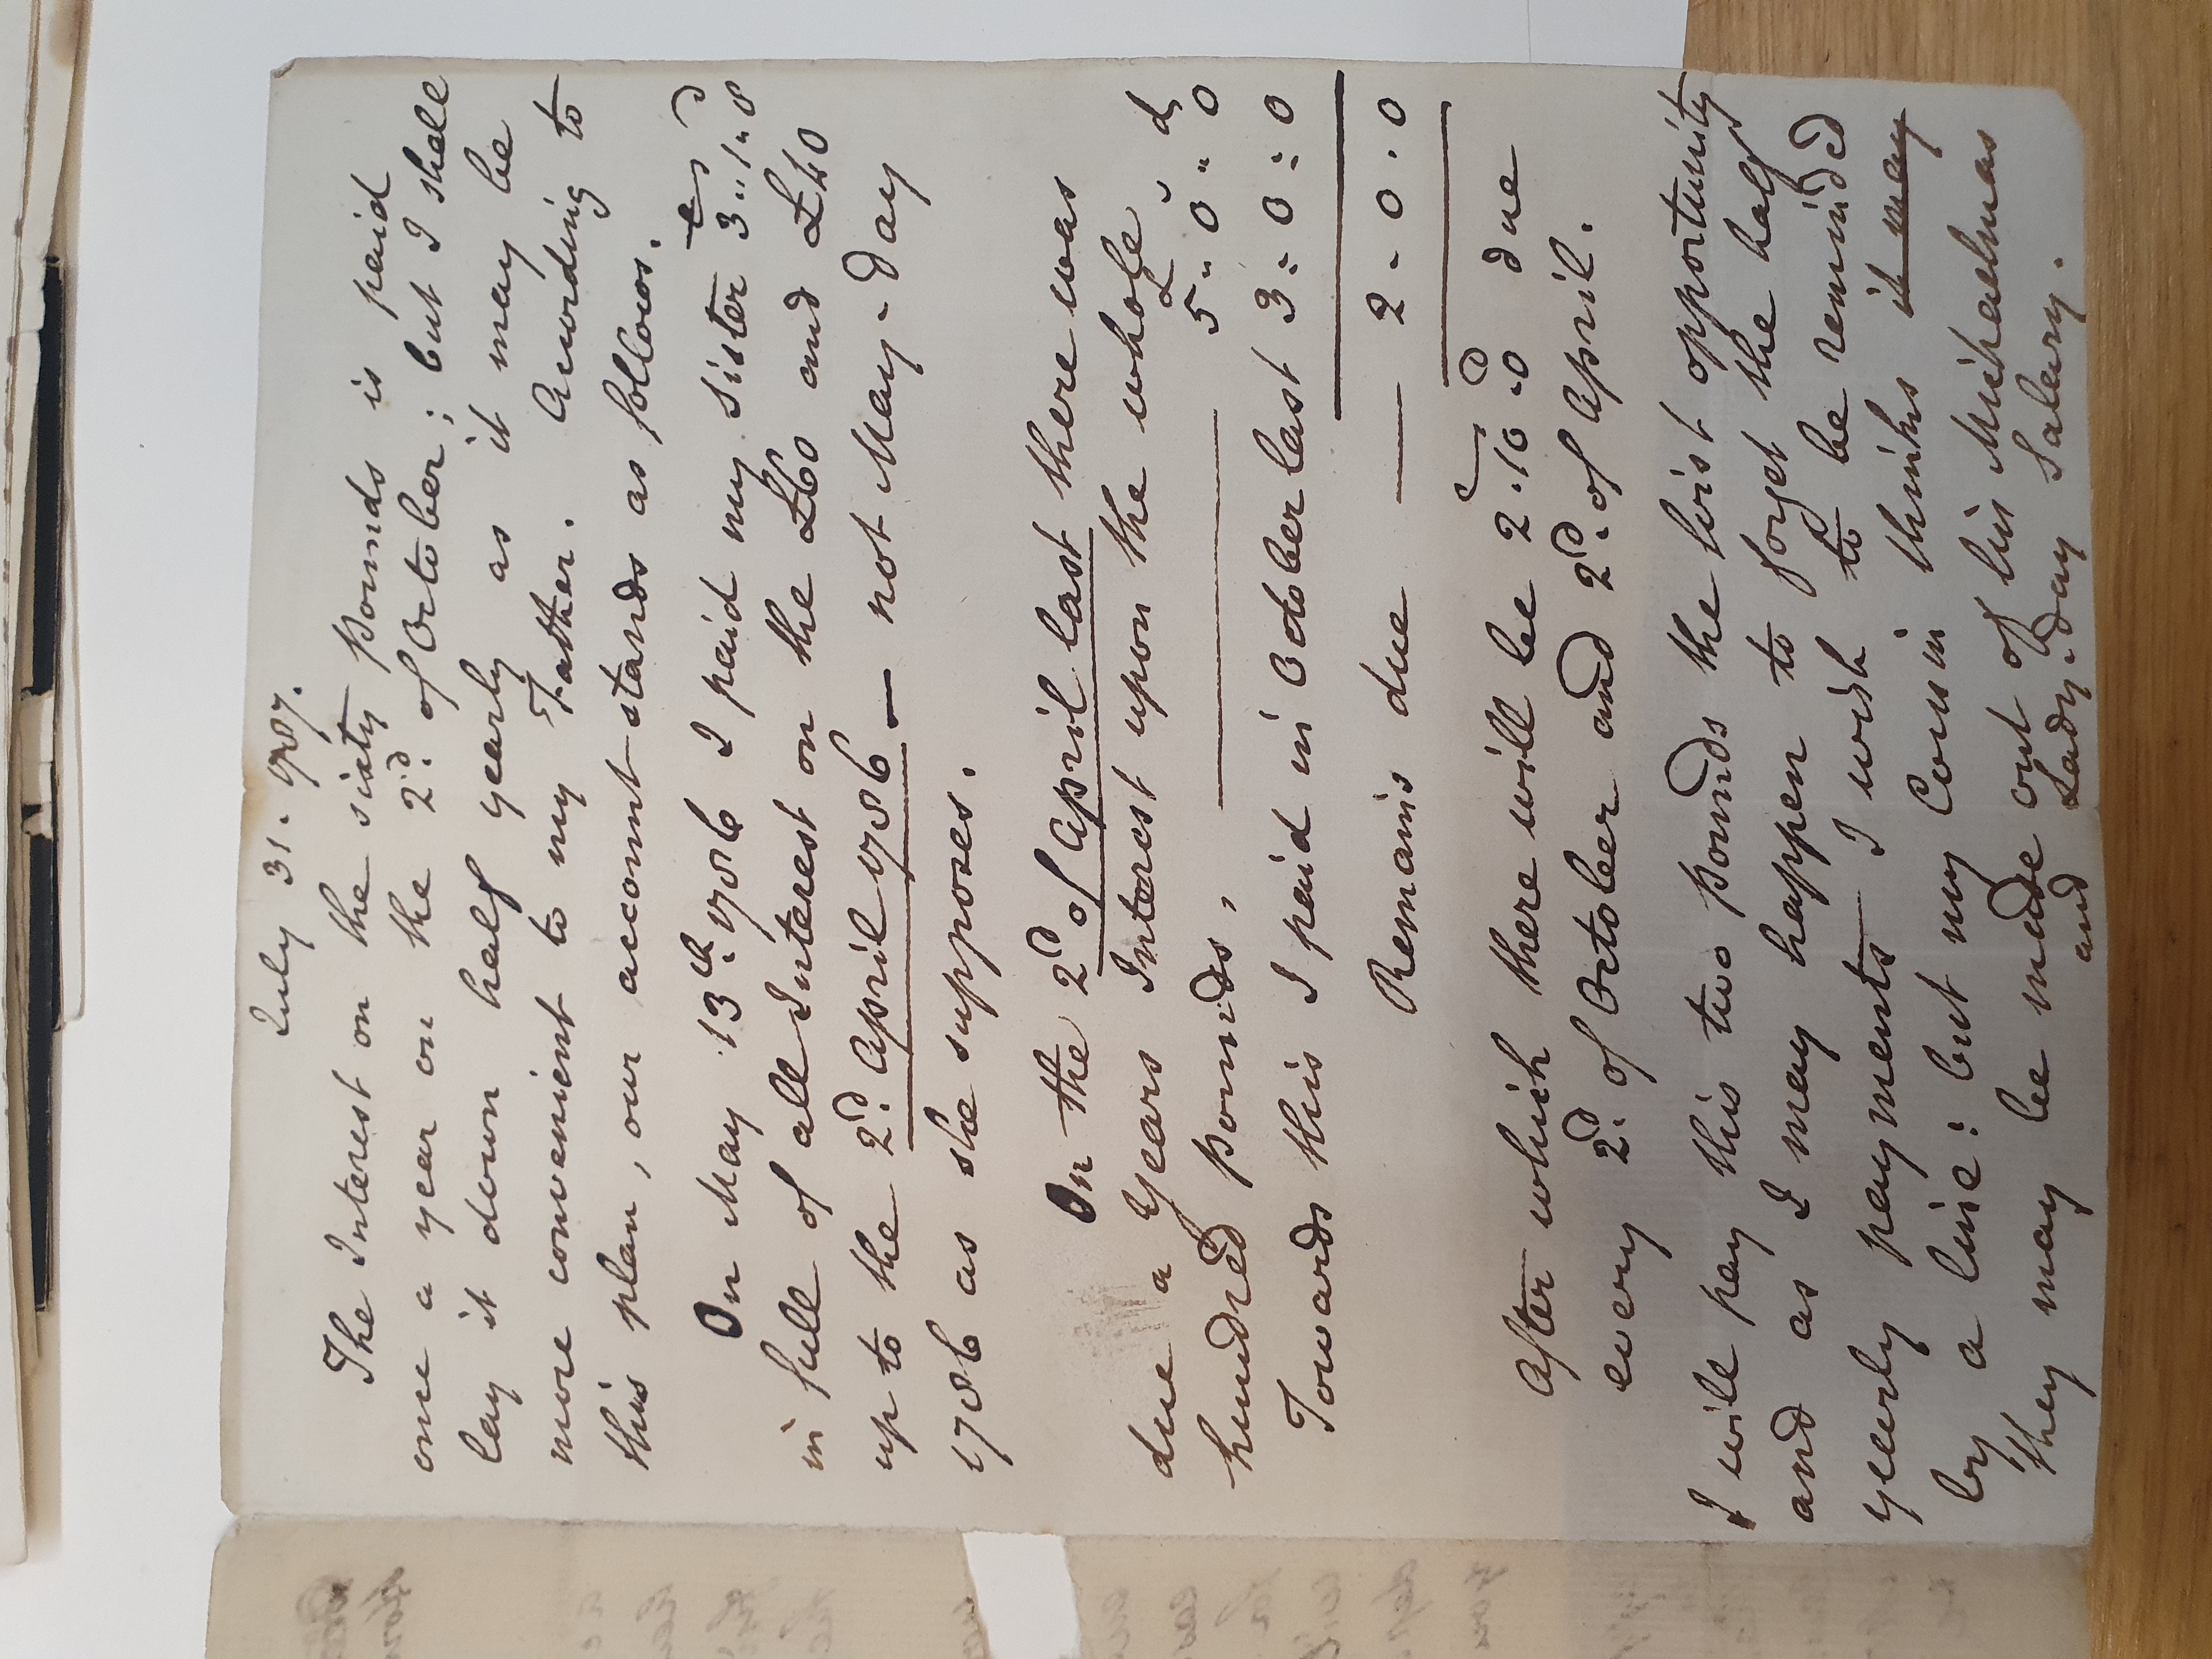 July 31. 1787.
The Interest on the sixty pounds is paid
once a year on the 2d. of October; but I shall
lay it down half yearly as it may be
more convenient to my Father. According to
this plan, our account stands as follows.
£ s d
On May 13th. 1786 I paid my sister 3..1..8
in full of all Interest on the £60 and £40
up to the 2d. April 1786 — not May-Day
1786 as she supposes.
On the 2d of April last there was
due a Years Interest upon the whole £ s d
hundred pounds, — 5..0..0
Towards this I paid in October last 3:0:0
Remains due — 2..0..0
After which there will be £2.10s.0d due
every 2d. of October and 2d. of April.
I will pay this two pounds the first opportunity
and as I may happen to forget the half
yearly payments I wish to be reminded
by a line: but my Cousin thinks it may
they may be made out of his Michaelmas
and Lady-Day Salary.